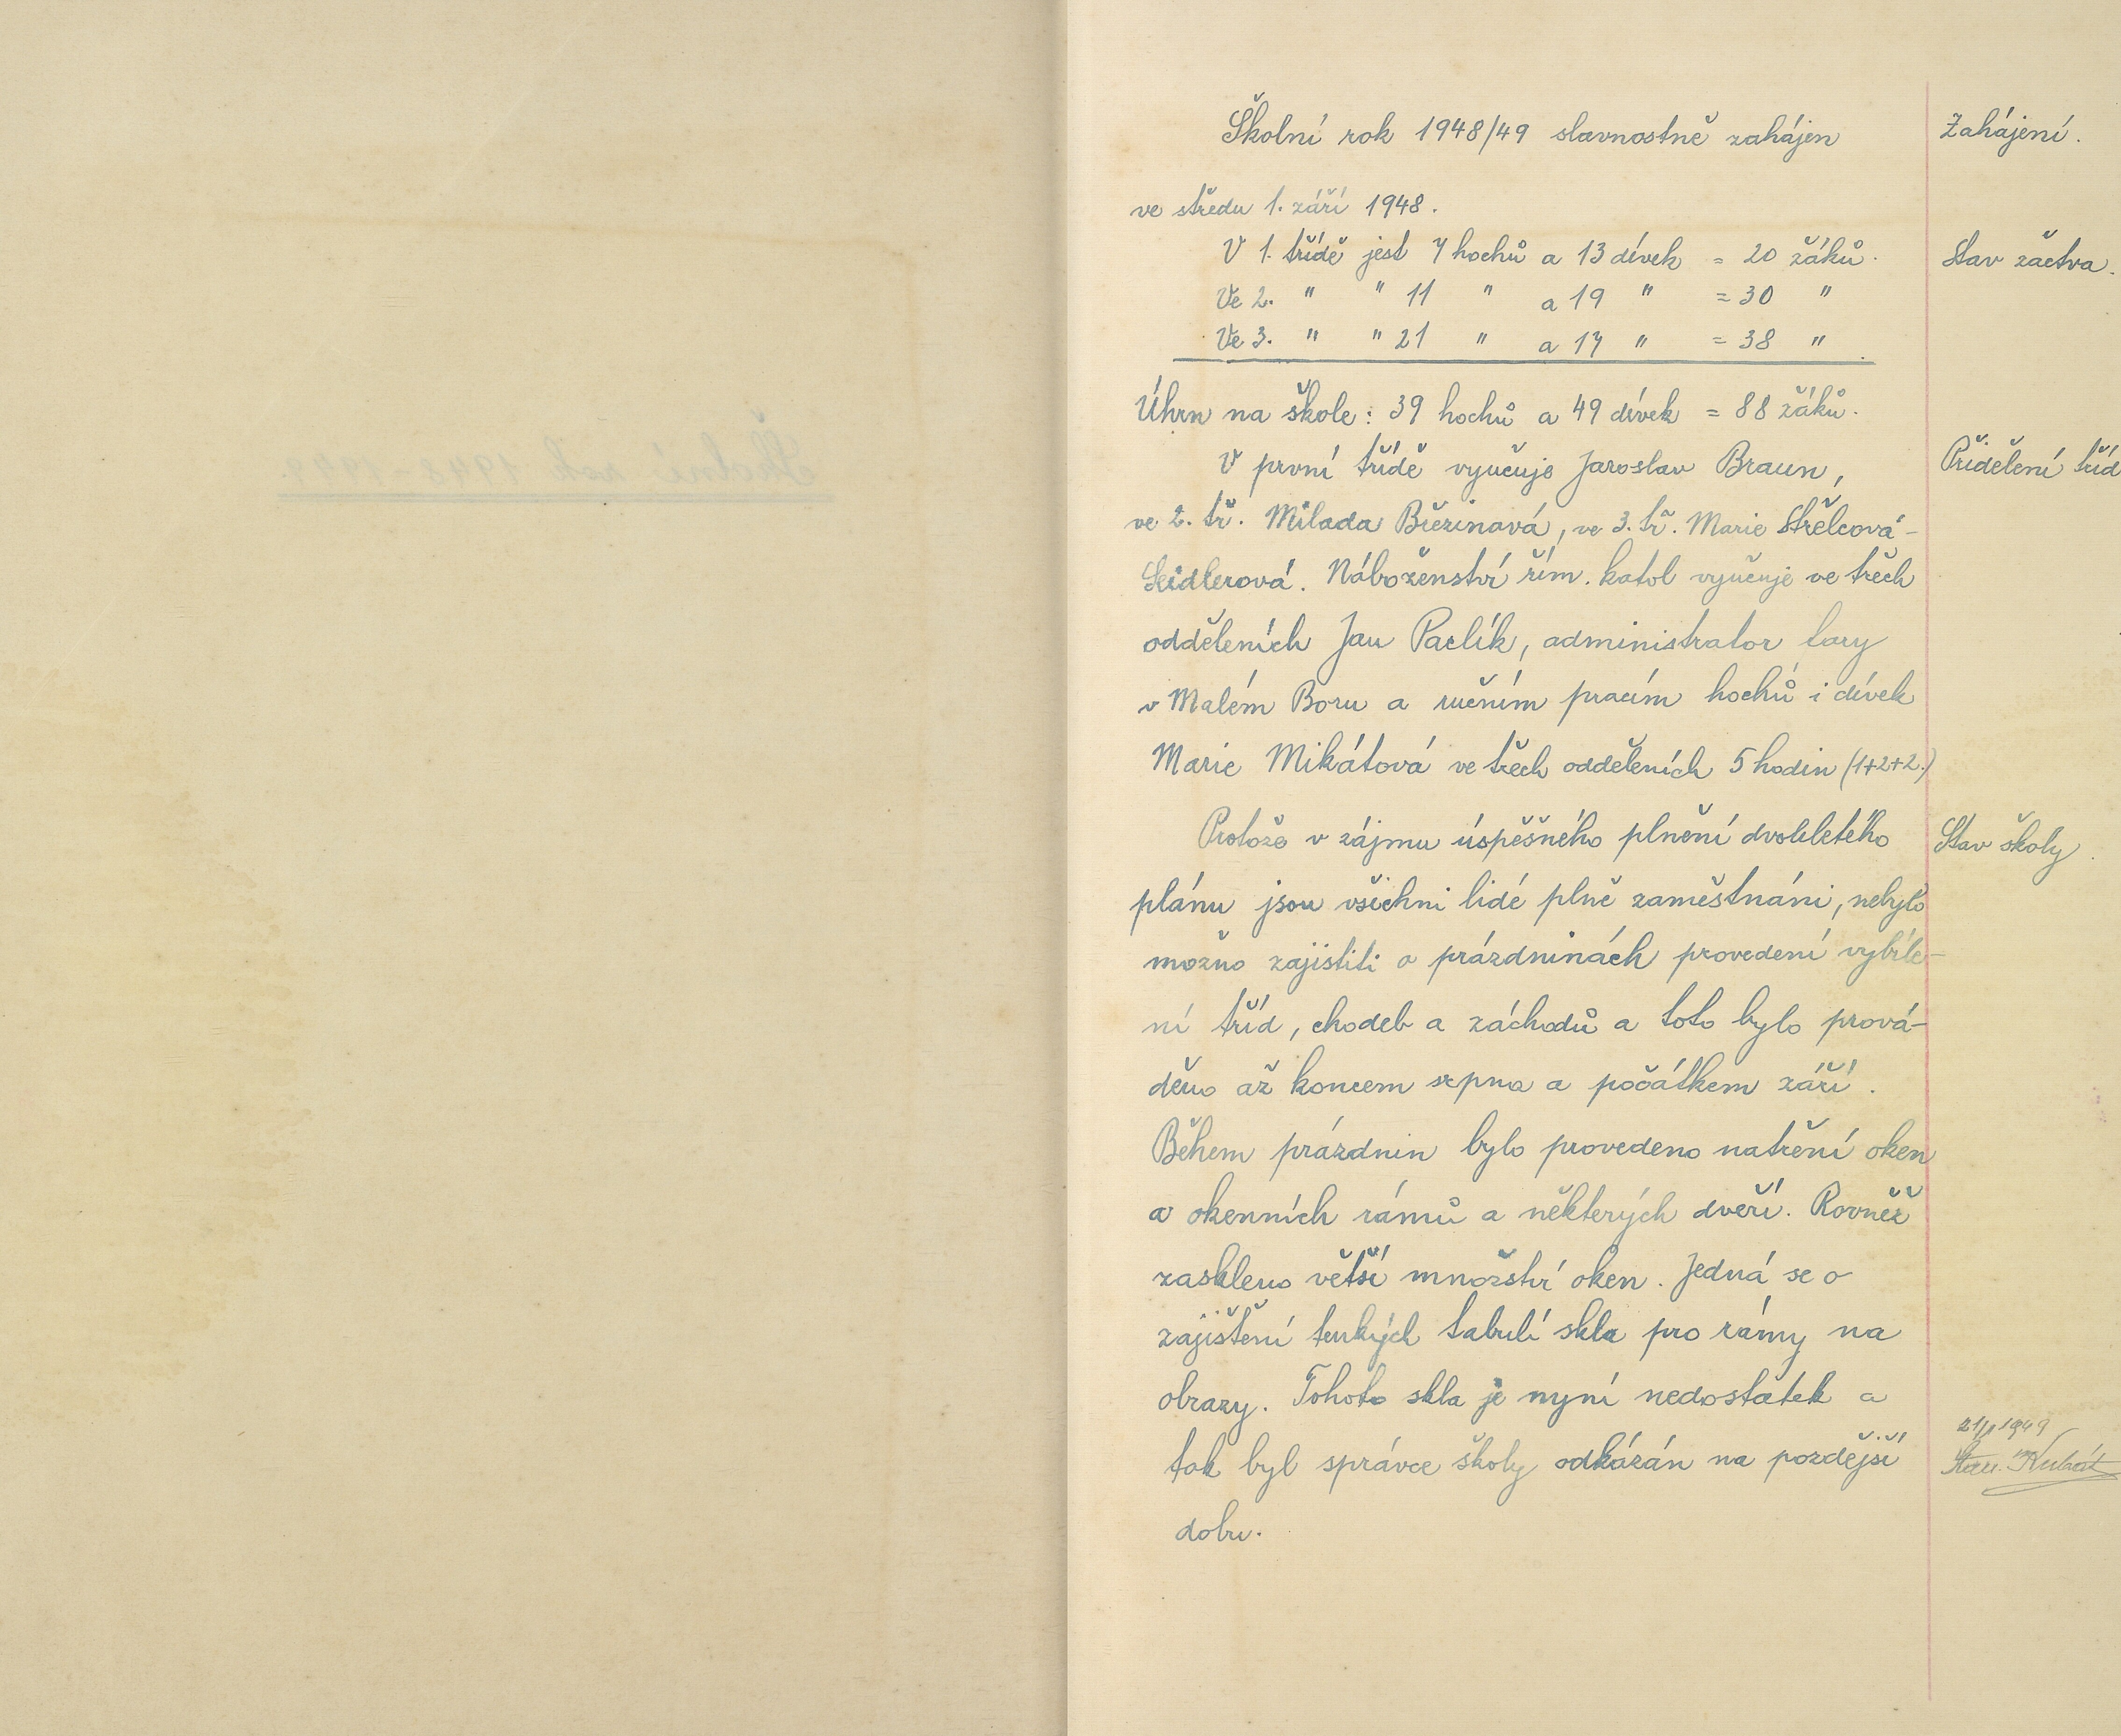 Školní rok 1948/49 slavnostně zahájen
Zahájení.
ve středu 1. září 1948.
V 1. třídě jest 7 hochů a 13 dívek = 20 žáků.
Stav žactva.
Ve 2. " " 11 " a 19 " = 30 "
Ve 3. " " 21 " a 17 " = 38 "
Úhrn na škole: 39 hochů a 49 dívek = 88 žáků.
V první třídě vyučuje Jaroslav Braun,
Přidělení tříd
ve 2. tř. Milada Březinová, ve 3. tř. Marie Střelcová-
Seidlerová. Náboženství řím. katol vyučuje ve třech
odděleních Jan Paclík, administrator fary
v Malém Boru a ručním pracím hochů i dívek
Marie Mikátová ve třech odděleních 5 hodin (1+2+2.)
Protože v zájmu úspěšného plnění dvouletého
Stav školy
plánu jsou všichni lidé plně zaměstnáni, nebylo
možno zajistiti o prázdninách provedení vybíle-
ní tříd, chodeb a záchodů a toto bylo prová-
děno až koncem srpna a počátkem září.
Během prázdnin bylo provedeno natření oken
a okenních rámů a některých dveří. Rovněž
zaskleno větší množství oken. Jedná se o
zajištění tenkých tabulí skla pro rámy na
obrazy. Tohoto skla je nyní nedostatek a
tak byl správce školy odkázán na pozdější
dobu.
1949
Kubát